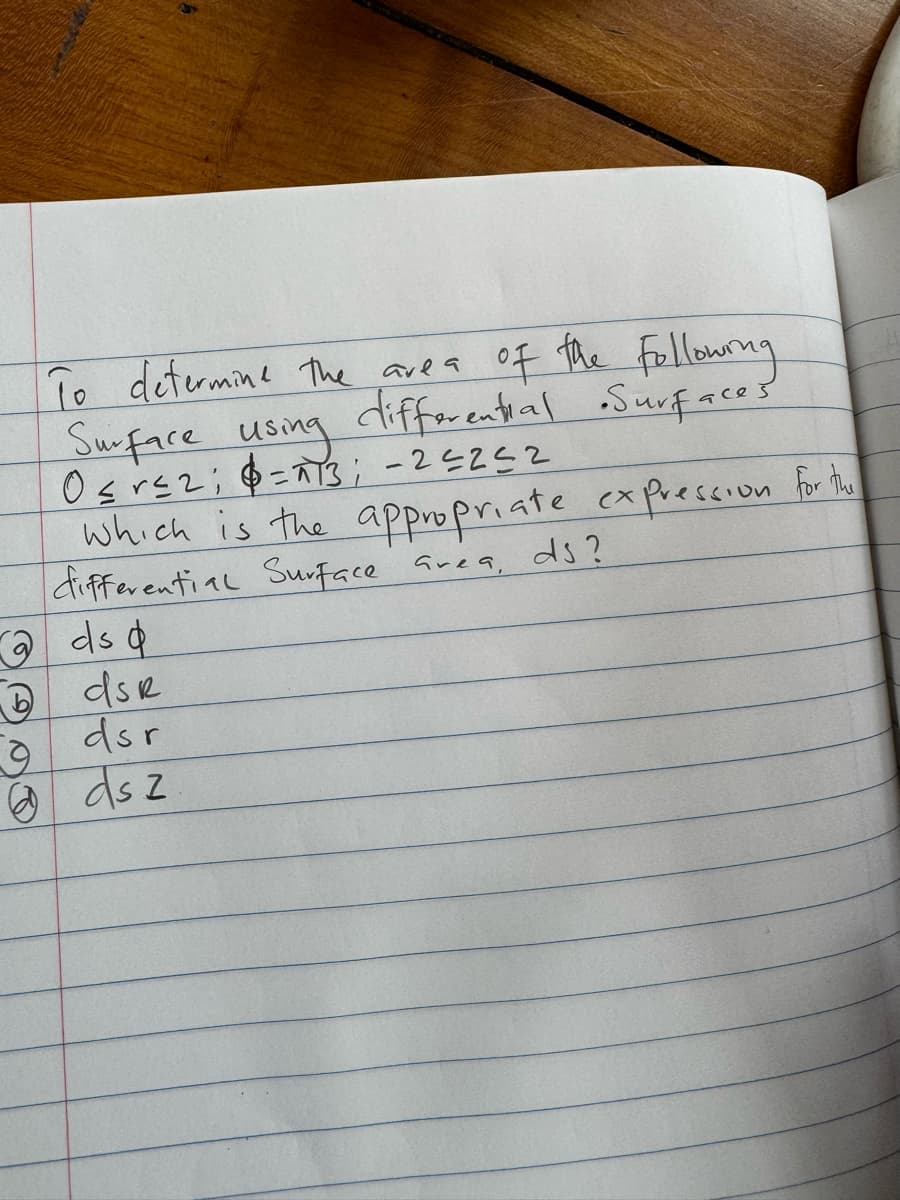 To determine the area of the following
Surface using differential .Surfaces
0 ≤ r ≤ 2; ϕ = π/3; -2 ≤ Z ≤ 2
which is the appropriate expression for the
differential Surface area, ds?
(a) ds ϕ
(b) ds R
(c) ds r
(d) ds Z